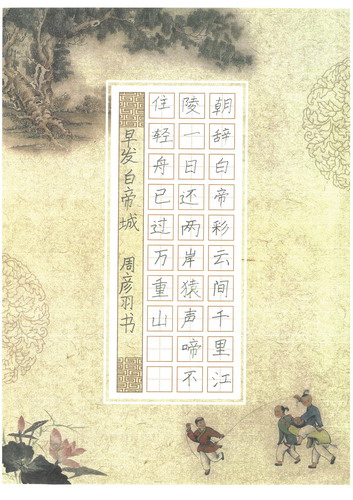 朝辞白帝彩云间千里江
陵一日还两岸猿声啼不
住轻舟已过万重山
早发白帝城 周彦羽书